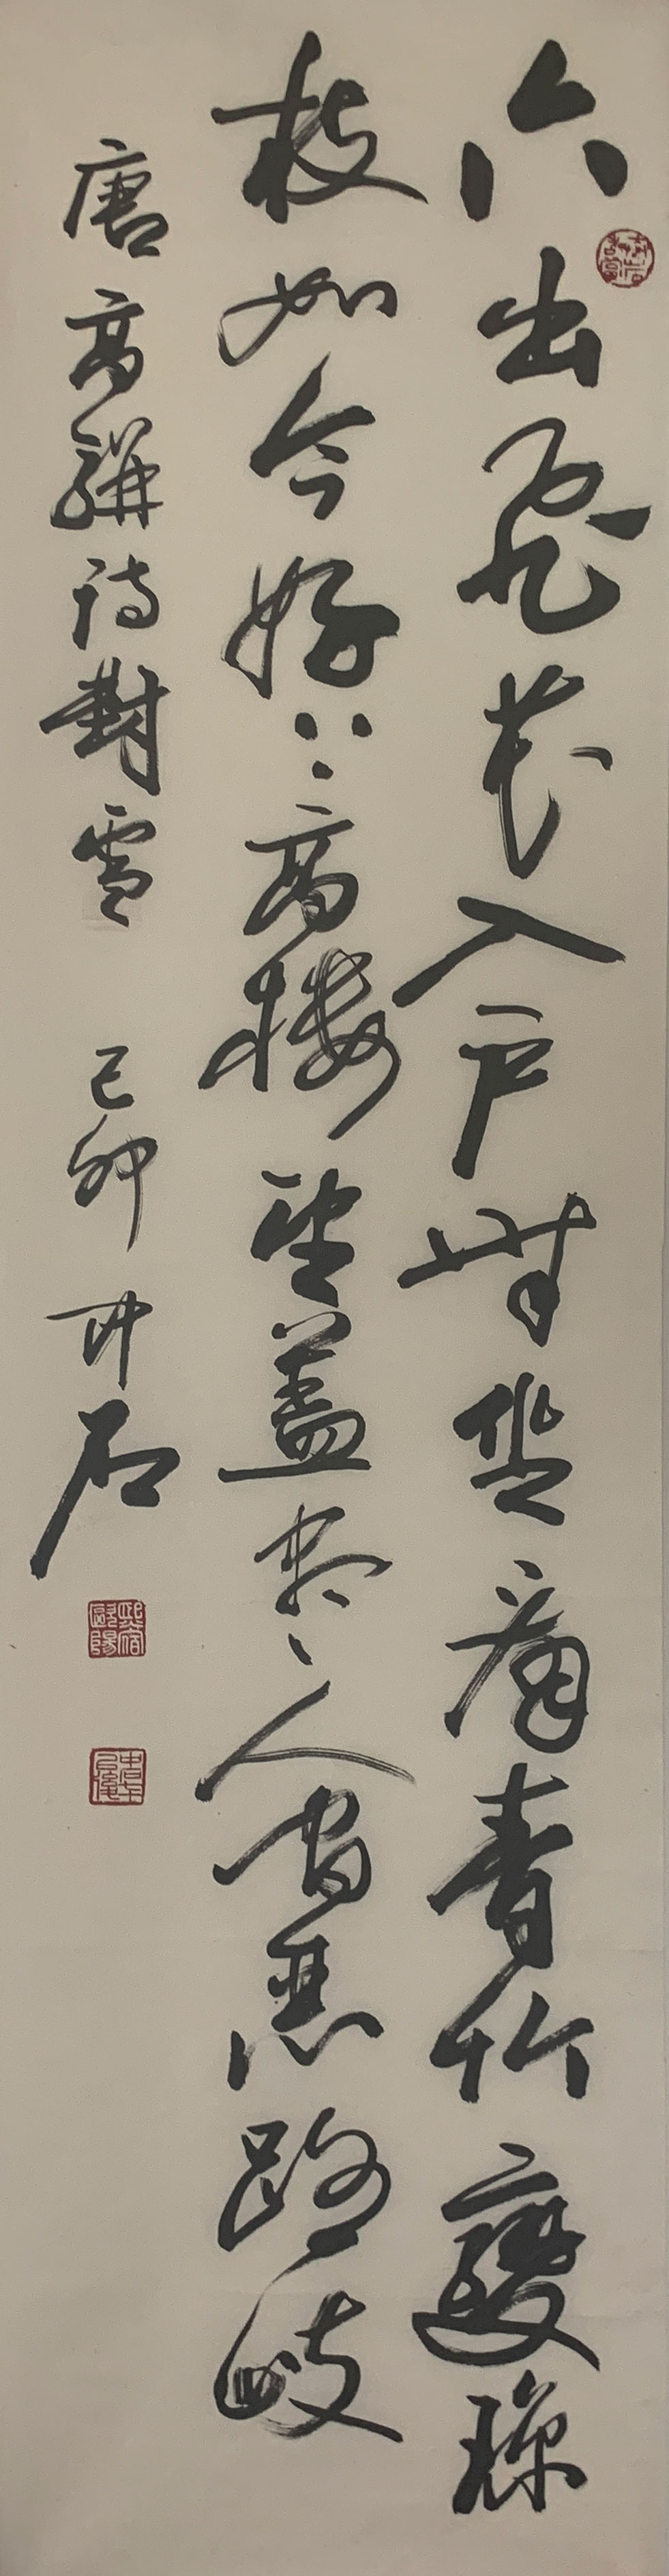 六出飛花入户時坐看青竹變瓊
枝如今好上高樓望蓋盡人間惡路岐
唐高駢詩對雪 己卯 中石